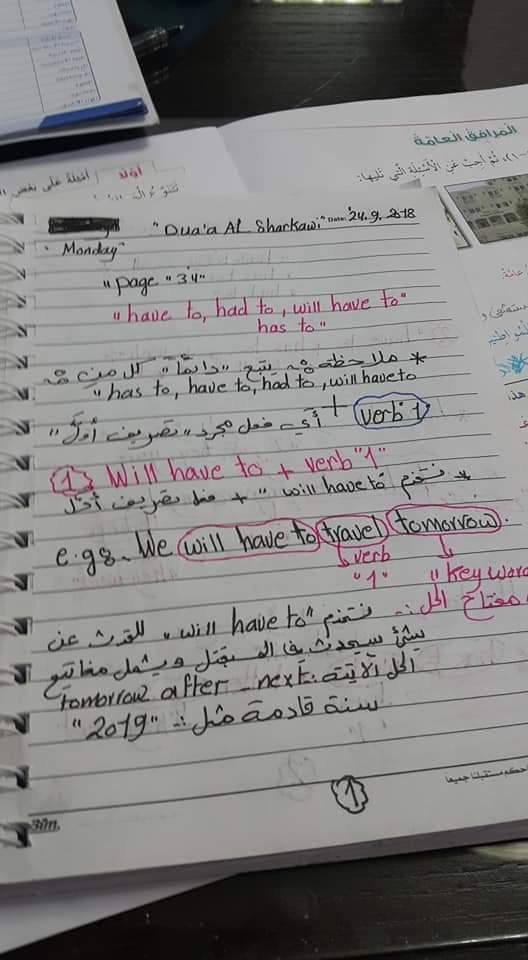 المرافق العامة
ثم أجب عن الأسئلة التي تليها:
أولا
"Dua'a Al Sharkawi" Date: 24.9.2018
"Monday"
"page "34"
"have to, had to, will have to"
has to"
* ملاحظة هـ يتبع "دائماً" كل من هـ
"has to, have to, had to, will have to
+ أي فعل مجرد "تصريف أول" verb 1
① Will have to + verb "1"
* نستخدم will have to" + فعل تصريف أول
e.g:- We will have to travel tomorrow.
verb
"1" "Key word
مفتاح الحل
:- نستخدم "will have to" للتحدث عن
شيء سيحدث في المستقبل ويشمل مفاتيح
الحل الآتية: tomorrow after - next
سنة قادمة مثل :- "2019"
1